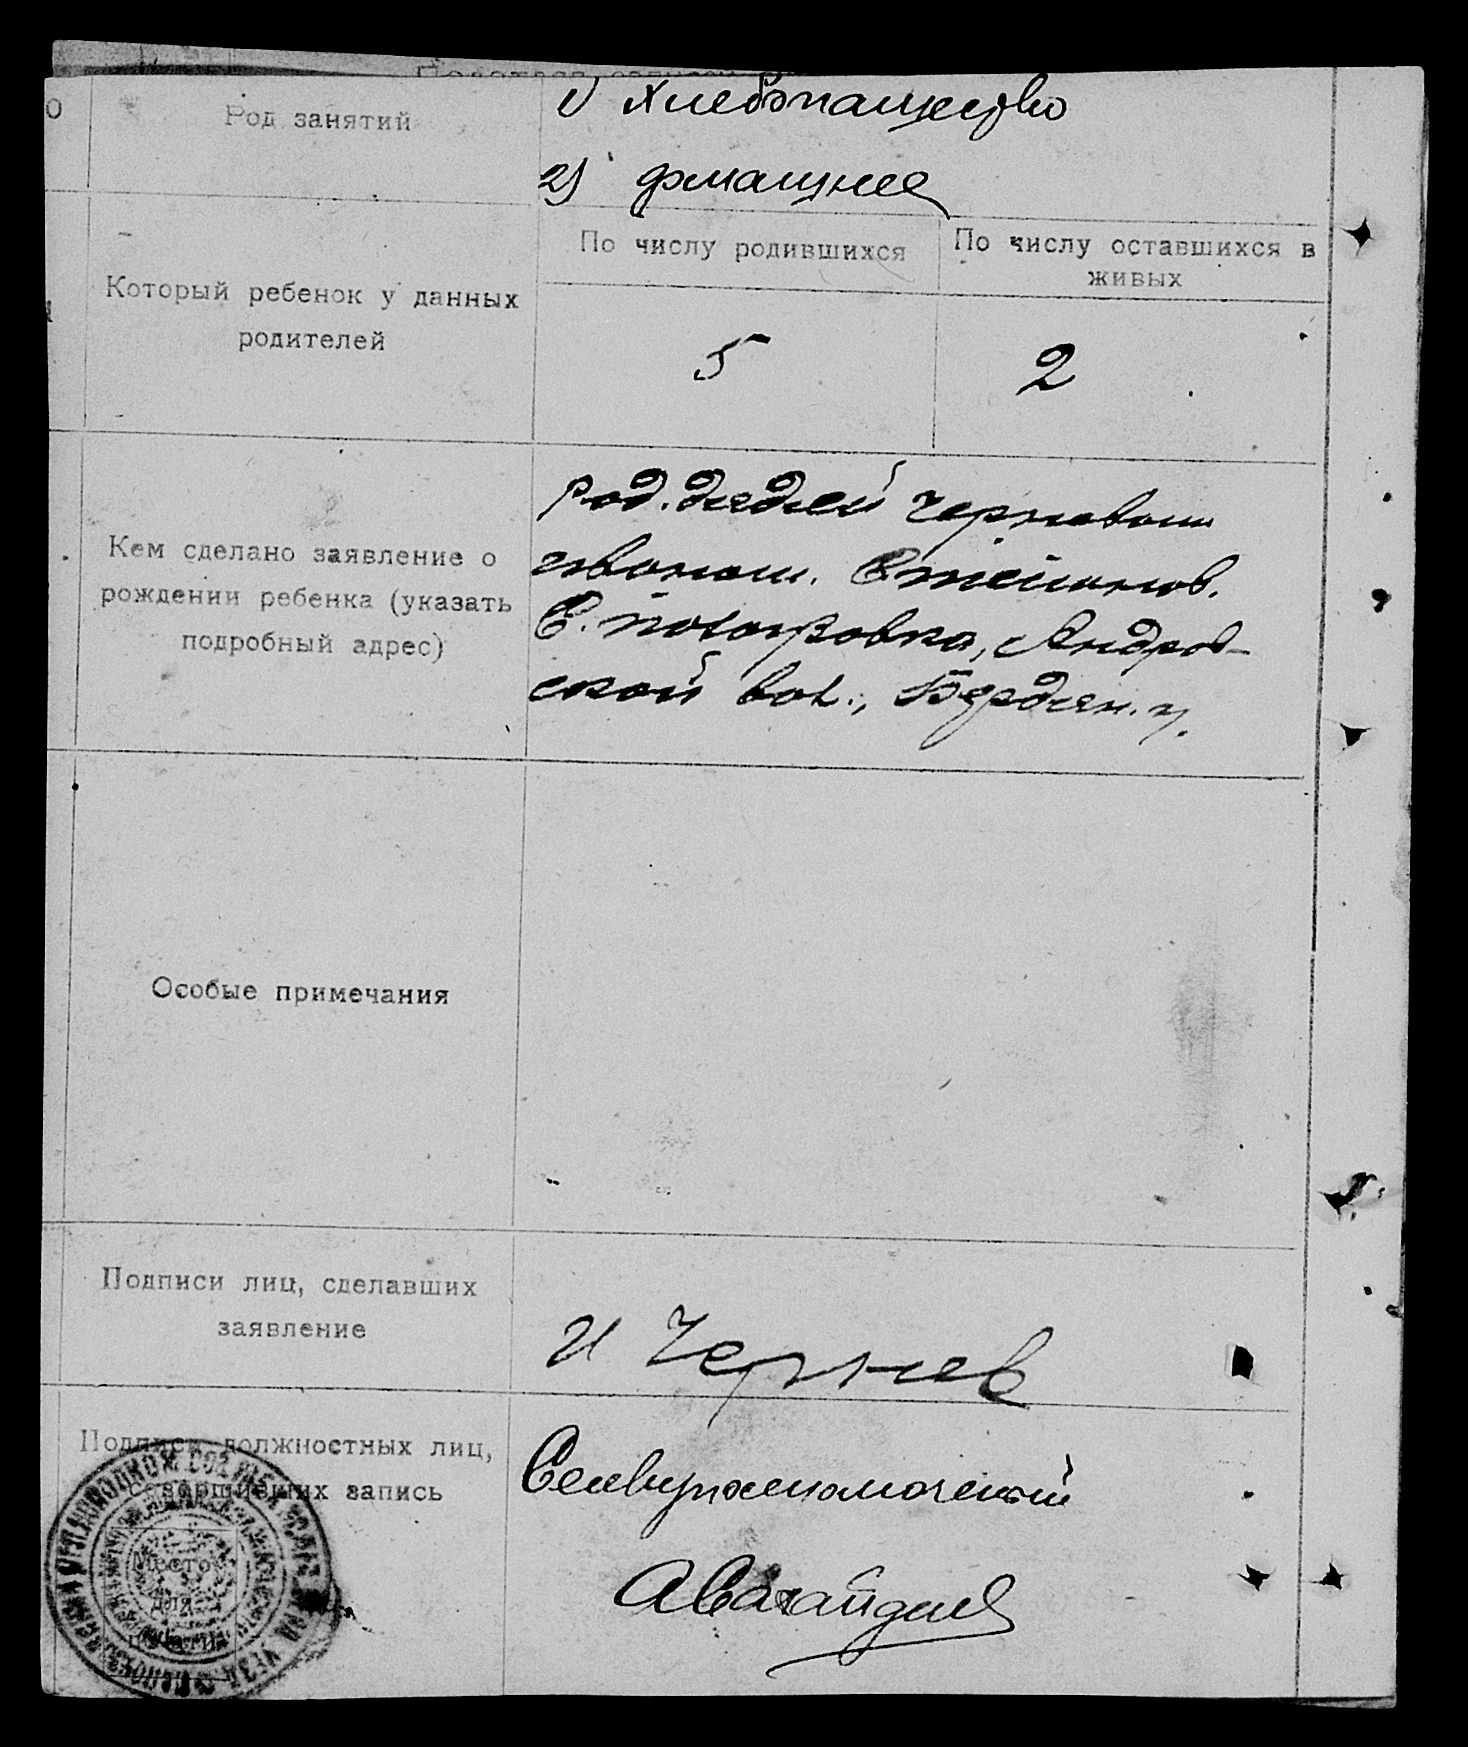 Род занятий
1) Хлебопашество
2) домашнее
Который ребенок у данных
родителей
По числу родившихся
По числу оставшихся в
живых
5
2
Кем сделано заявление о
рождении ребенка (указать
подробный адрес)
род. дядей Черневым
Степанов.
С. Андров-
ской вол., Бердян. у.
Особые примечания
Подписи лиц, сделавших
заявление
И Чернев
Подписи должностных лиц,
совершивших запись
Место
для
печати